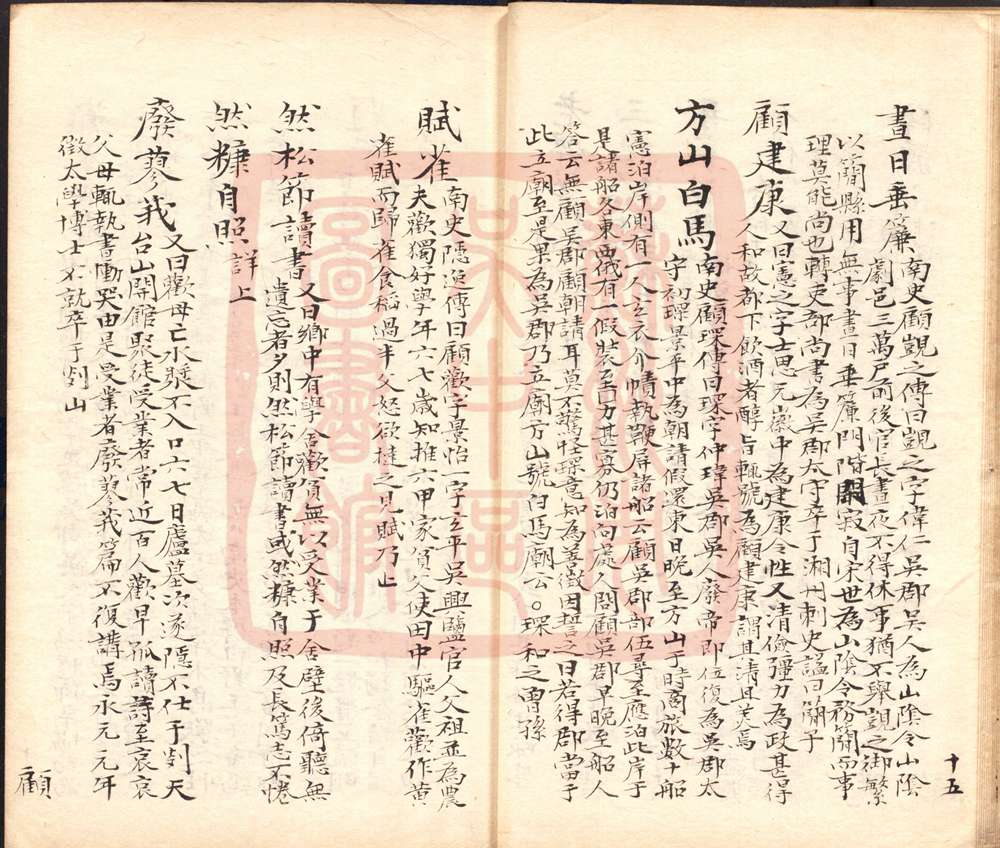 十五
晝日垂簾 南史顧覬之傳曰覬之字偉仁吳郡吳人為山陰令山陰
劇邑三萬戶前後官長晝夜不得休事猶不舉覬之御繁
以簡縣用無事晝日垂簾門階閑寂自宋世為山陰令務簡而事
理莫能尚也轉吏部尚書為吳郡太守卒于湘州刺史謚曰簡子
顧建康 又曰憲之字士思元徽中為建康令性又清儉彊力為政甚得
人和故都下飲酒者醇旨輒號為顧建康謂其清且美焉
方山白馬 南史顧琛傳曰琛字仲瑋吳郡吳人廢帝即位復為吳郡太
守初琛景平中為朝請假還東日晚至方山于時商旅數十船
憲泊岸側有一人玄衣介幘執鞭屏諸船云顧吳郡部伍尋至應泊此岸于
是諸船各東西俄有一假裝至事力甚寡仍泊向處人問顧吳郡早晚至船人
答云無顧吳郡顧朝請耳莫不驚怪琛意知為善徵因誓之曰若得郡當于
此立廟至是果為吳郡乃立廟方山號白馬廟云。琛和之曾孫
賦雀 南史隱逸傳曰顧歡字景怡一字玄平吳興鹽官人父祖並為農
夫歡獨好學年六七歲知推六甲家貧父使田中驅雀歡作黃
雀賦而歸雀食稻過半父怒欲撻之見賦乃止
然松節讀書 又曰鄉中有學舍歡貧無以受業于舍壁後倚聽無
遺忘者夕則然松節讀書或然糠自照及長篤志不倦
然糠自照 詳上
廢蓼莪 又曰歡母亡水漿不入口六七日廬墓次遂隱不仕于剡天
台山開館聚徒受業者常近百人歡早孤讀詩至哀哀
父母輒執書慟哭由是受業者廢蓼莪篇不復講焉永元元年
徵太學博士不就卒于剡山
顧